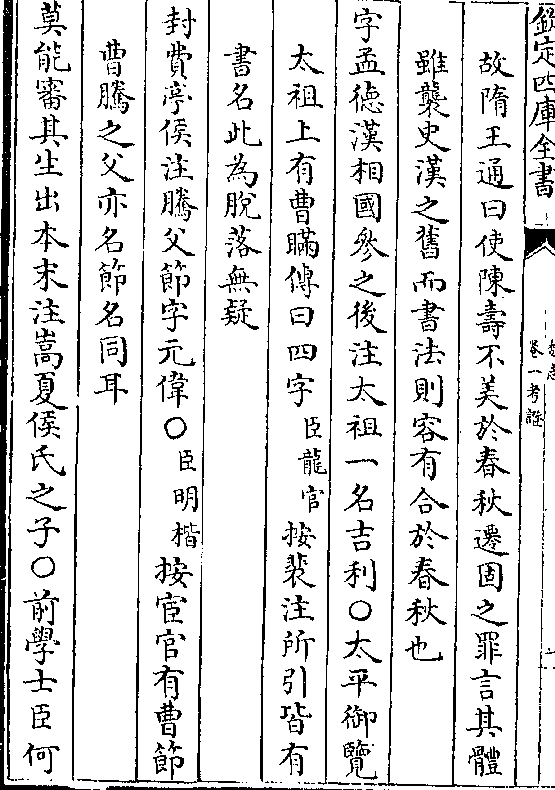 欽定四庫全書
卷一考證
故隋王通曰使陳壽不美於春秋遷固之罪言其體
雖襲史漢之舊而書法則容有合於春秋也
字孟德漢相國參之後注太祖一名吉利○太平御覽
太祖上有曹瞞傳曰四字臣龍官按裴注所引皆有
書名此為脫落無疑
封費亭侯注騰父節字元偉○臣明楷按宦官有曹節
曹騰之父亦名節名同耳
莫能審其生出本末注嵩夏侯氏之子○前學士臣何